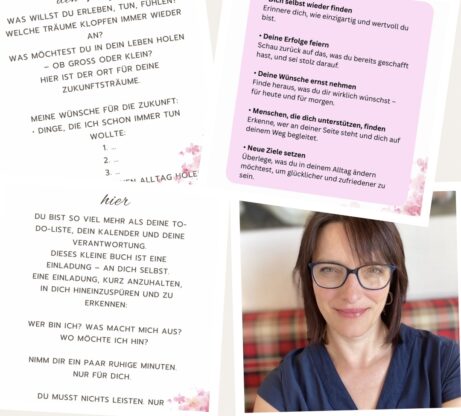 WAS WILLST DU ERLEBEN, TUN, FÜHLEN?
WELCHE TRÄUME KLOPFEN IMMER WIEDER
AN?
WAS MÖCHTEST DU IN DEIN LEBEN HOLEN
– OB GROSS ODER KLEIN?
HIER IST DER ORT FÜR DEINE
ZUKUNFTSTRÄUME.
MEINE WÜNSCHE FÜR DIE ZUKUNFT:
• DINGE, DIE ICH SCHON IMMER TUN
WOLLTE:
1. ...
2. ...
3. ...
ALLTAG HOLE
selbst wieder finden
Erinnere dich, wie einzigartig und wertvoll du
bist.
• Deine Erfolge feiern
Schau zurück auf das, was du bereits geschafft
hast, und sei stolz darauf.
• Deine Wünsche ernst nehmen
Finde heraus, was du dir wirklich wünschst –
für heute und für morgen.
• Menschen, die dich unterstützen, finden
Erkenne, wer an deiner Seite steht und dich auf
deinem Weg begleitet.
• Neue Ziele setzen
Überlege, was du in deinem Alltag ändern
möchtest, um glücklicher und zufriedener zu
sein.
hier
DU BIST SO VIEL MEHR ALS DEINE TO-
DO-LISTE, DEIN KALENDER UND DEINE
VERANTWORTUNG.
DIESES KLEINE BUCH IST EINE
EINLADUNG – AN DICH SELBST.
EINE EINLADUNG, KURZ ANZUHALTEN,
IN DICH HINEINZUSPÜREN UND ZU
ERKENNEN:
WER BIN ICH? WAS MACHT MICH AUS?
WO MÖCHTE ICH HIN?
NIMM DIR EIN PAAR RUHIGE MINUTEN.
NUR FÜR DICH.
DU MUSST NICHTS LEISTEN. NUR